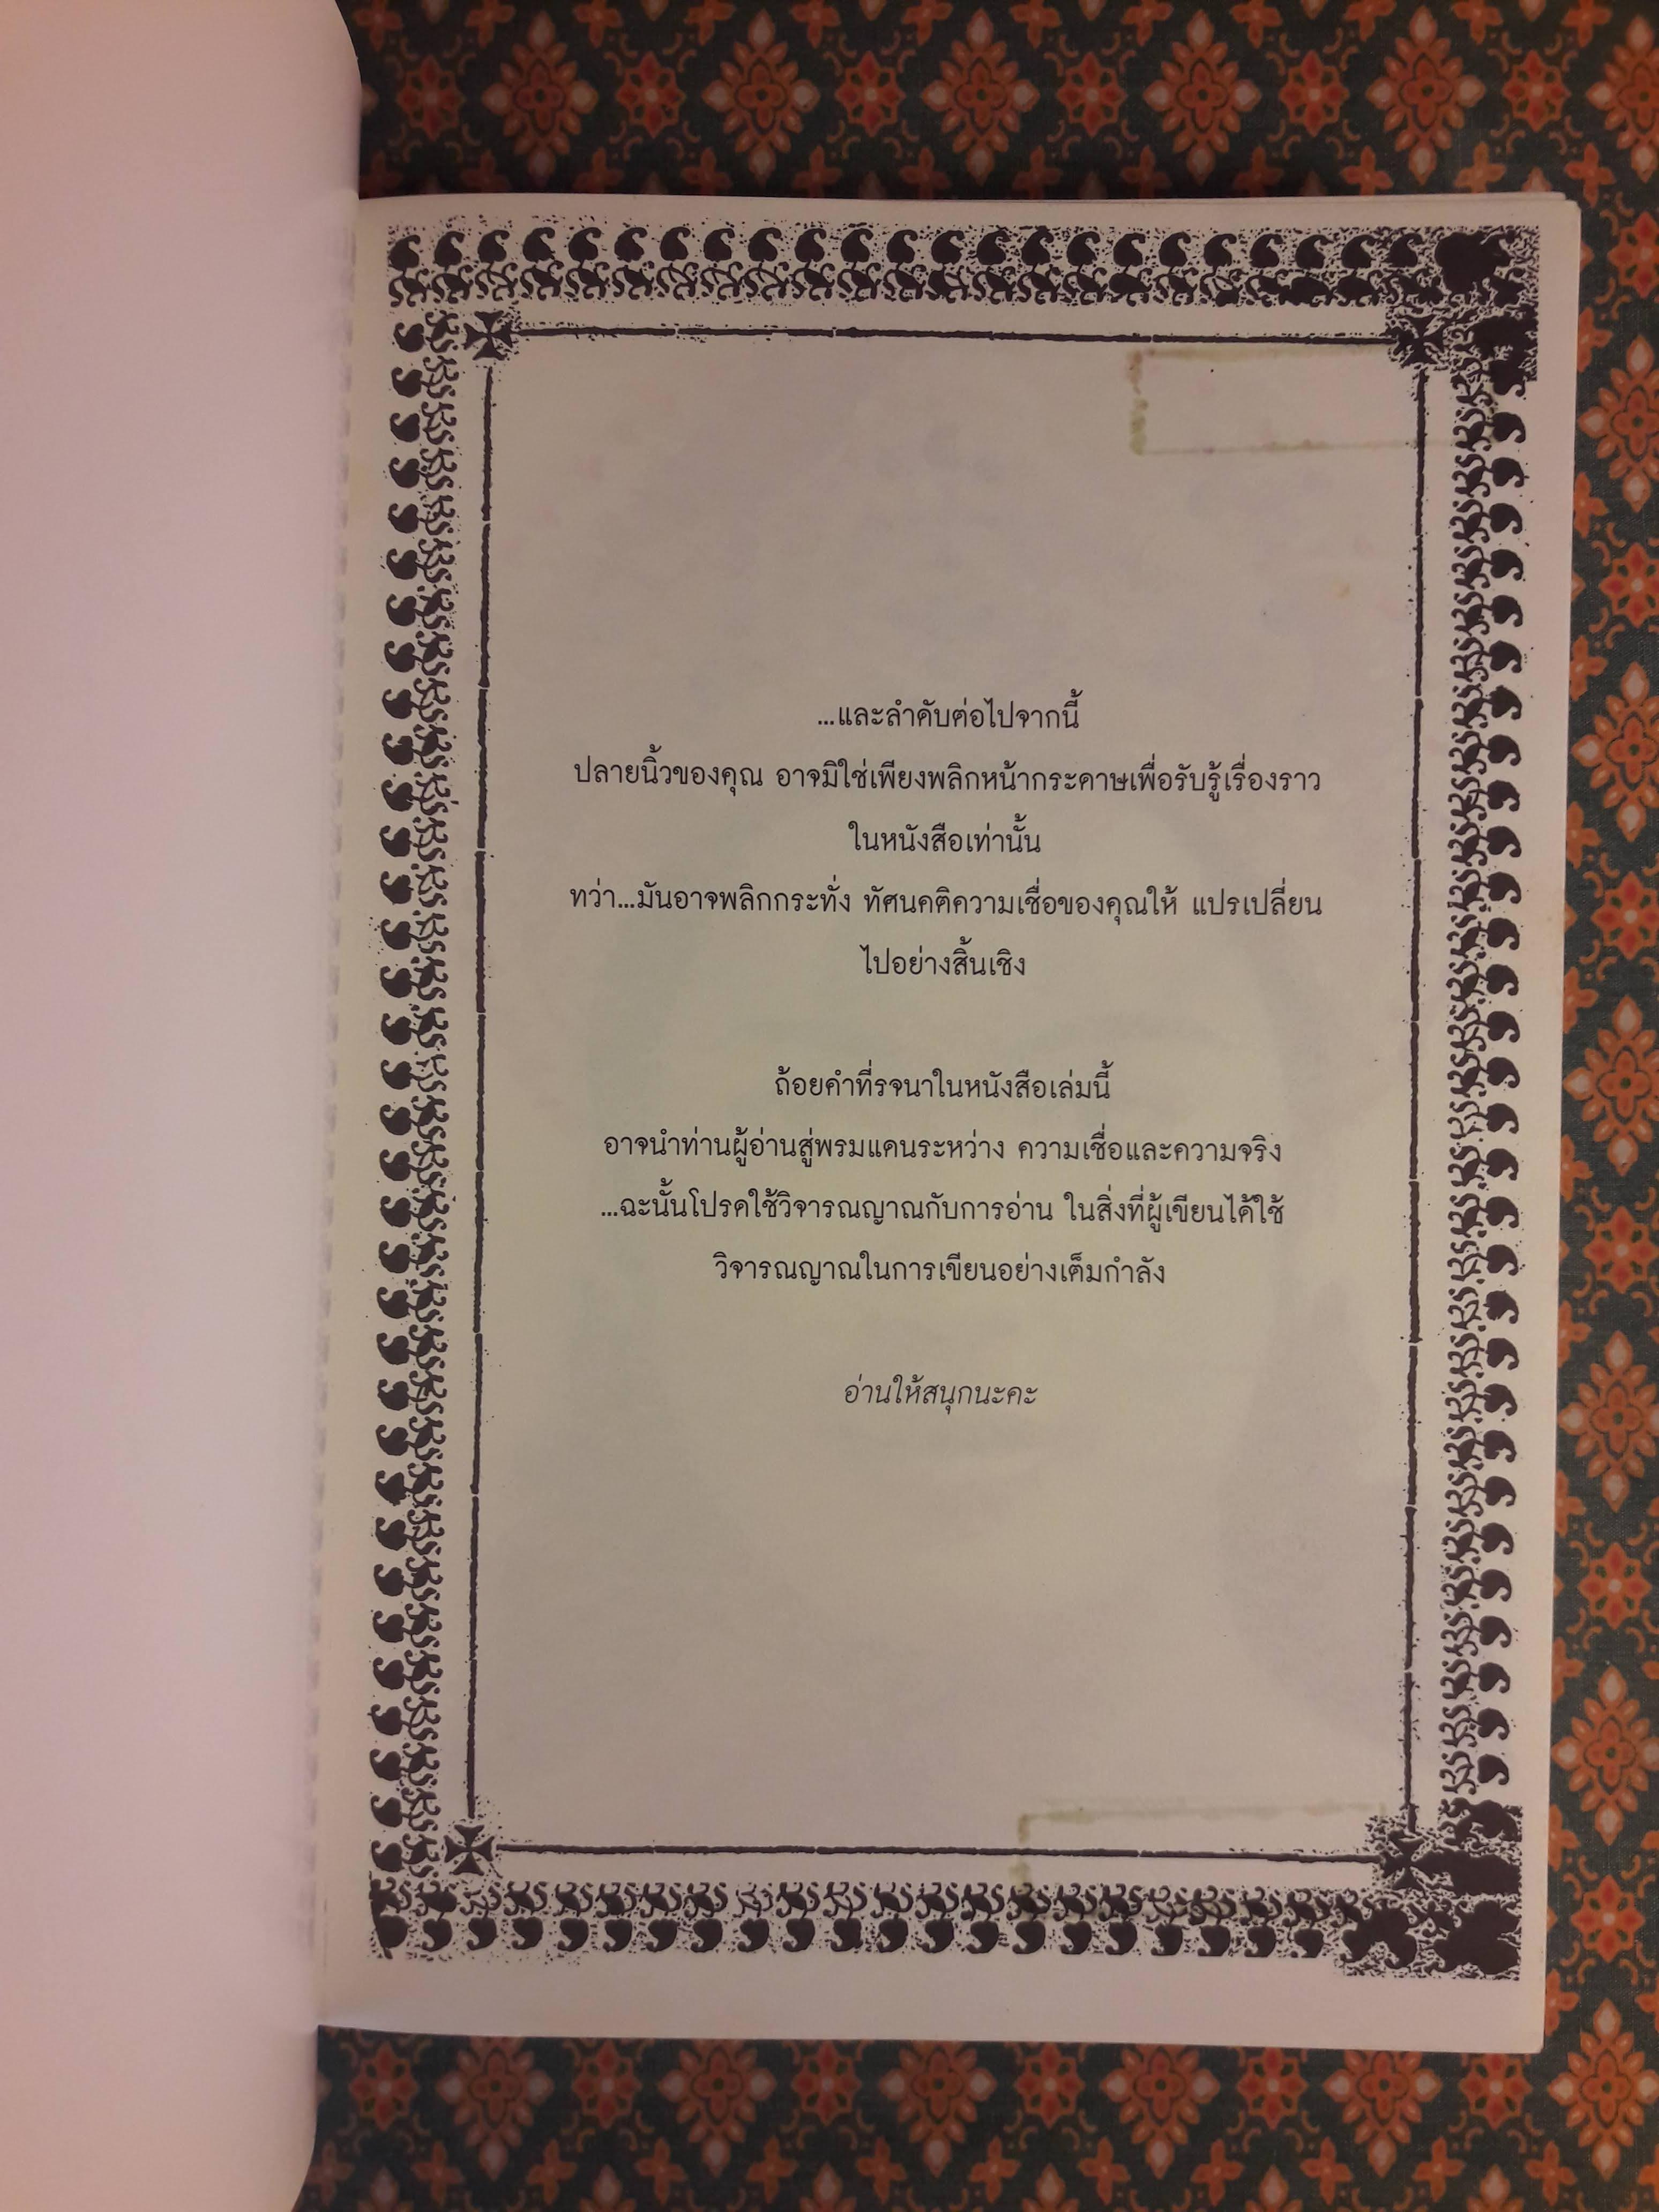 ...และลำดับต่อไปจากนี้
ปลายนิ้วของคุณ อาจมิใช่เพียงพลิกหน้ากระดาษเพื่อรับรู้เรื่องราว
ในหนังสือเท่านั้น
ทว่า...มันอาจพลิกกระทั่ง ทัศนคติความเชื่อของคุณให้ แปรเปลี่ยน
ไปอย่างสิ้นเชิง
ถ้อยคำที่รจนาในหนังสือเล่มนี้
อาจนำท่านผู้อ่านสู่พรมแดนระหว่าง ความเชื่อและความจริง
...ฉะนั้นโปรดใช้วิจารณญาณกับการอ่าน ในสิ่งที่ผู้เขียนได้ใช้
วิจารณญาณในการเขียนอย่างเต็มกำลัง
อ่านให้สนุกนะคะ